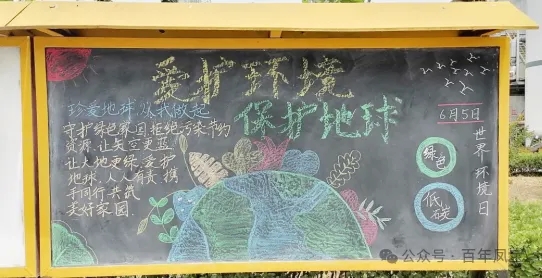 爱护环境
保护地球
珍爱地球 从我做起
守护绿色家园 拒绝污染 节约
资源 让天空更蓝
让大地更绿 爱护
地球 人人有责 携
手同行 共筑
美好家园
6月5日
世界环境日
绿色
低碳
公众号 · 百年凤